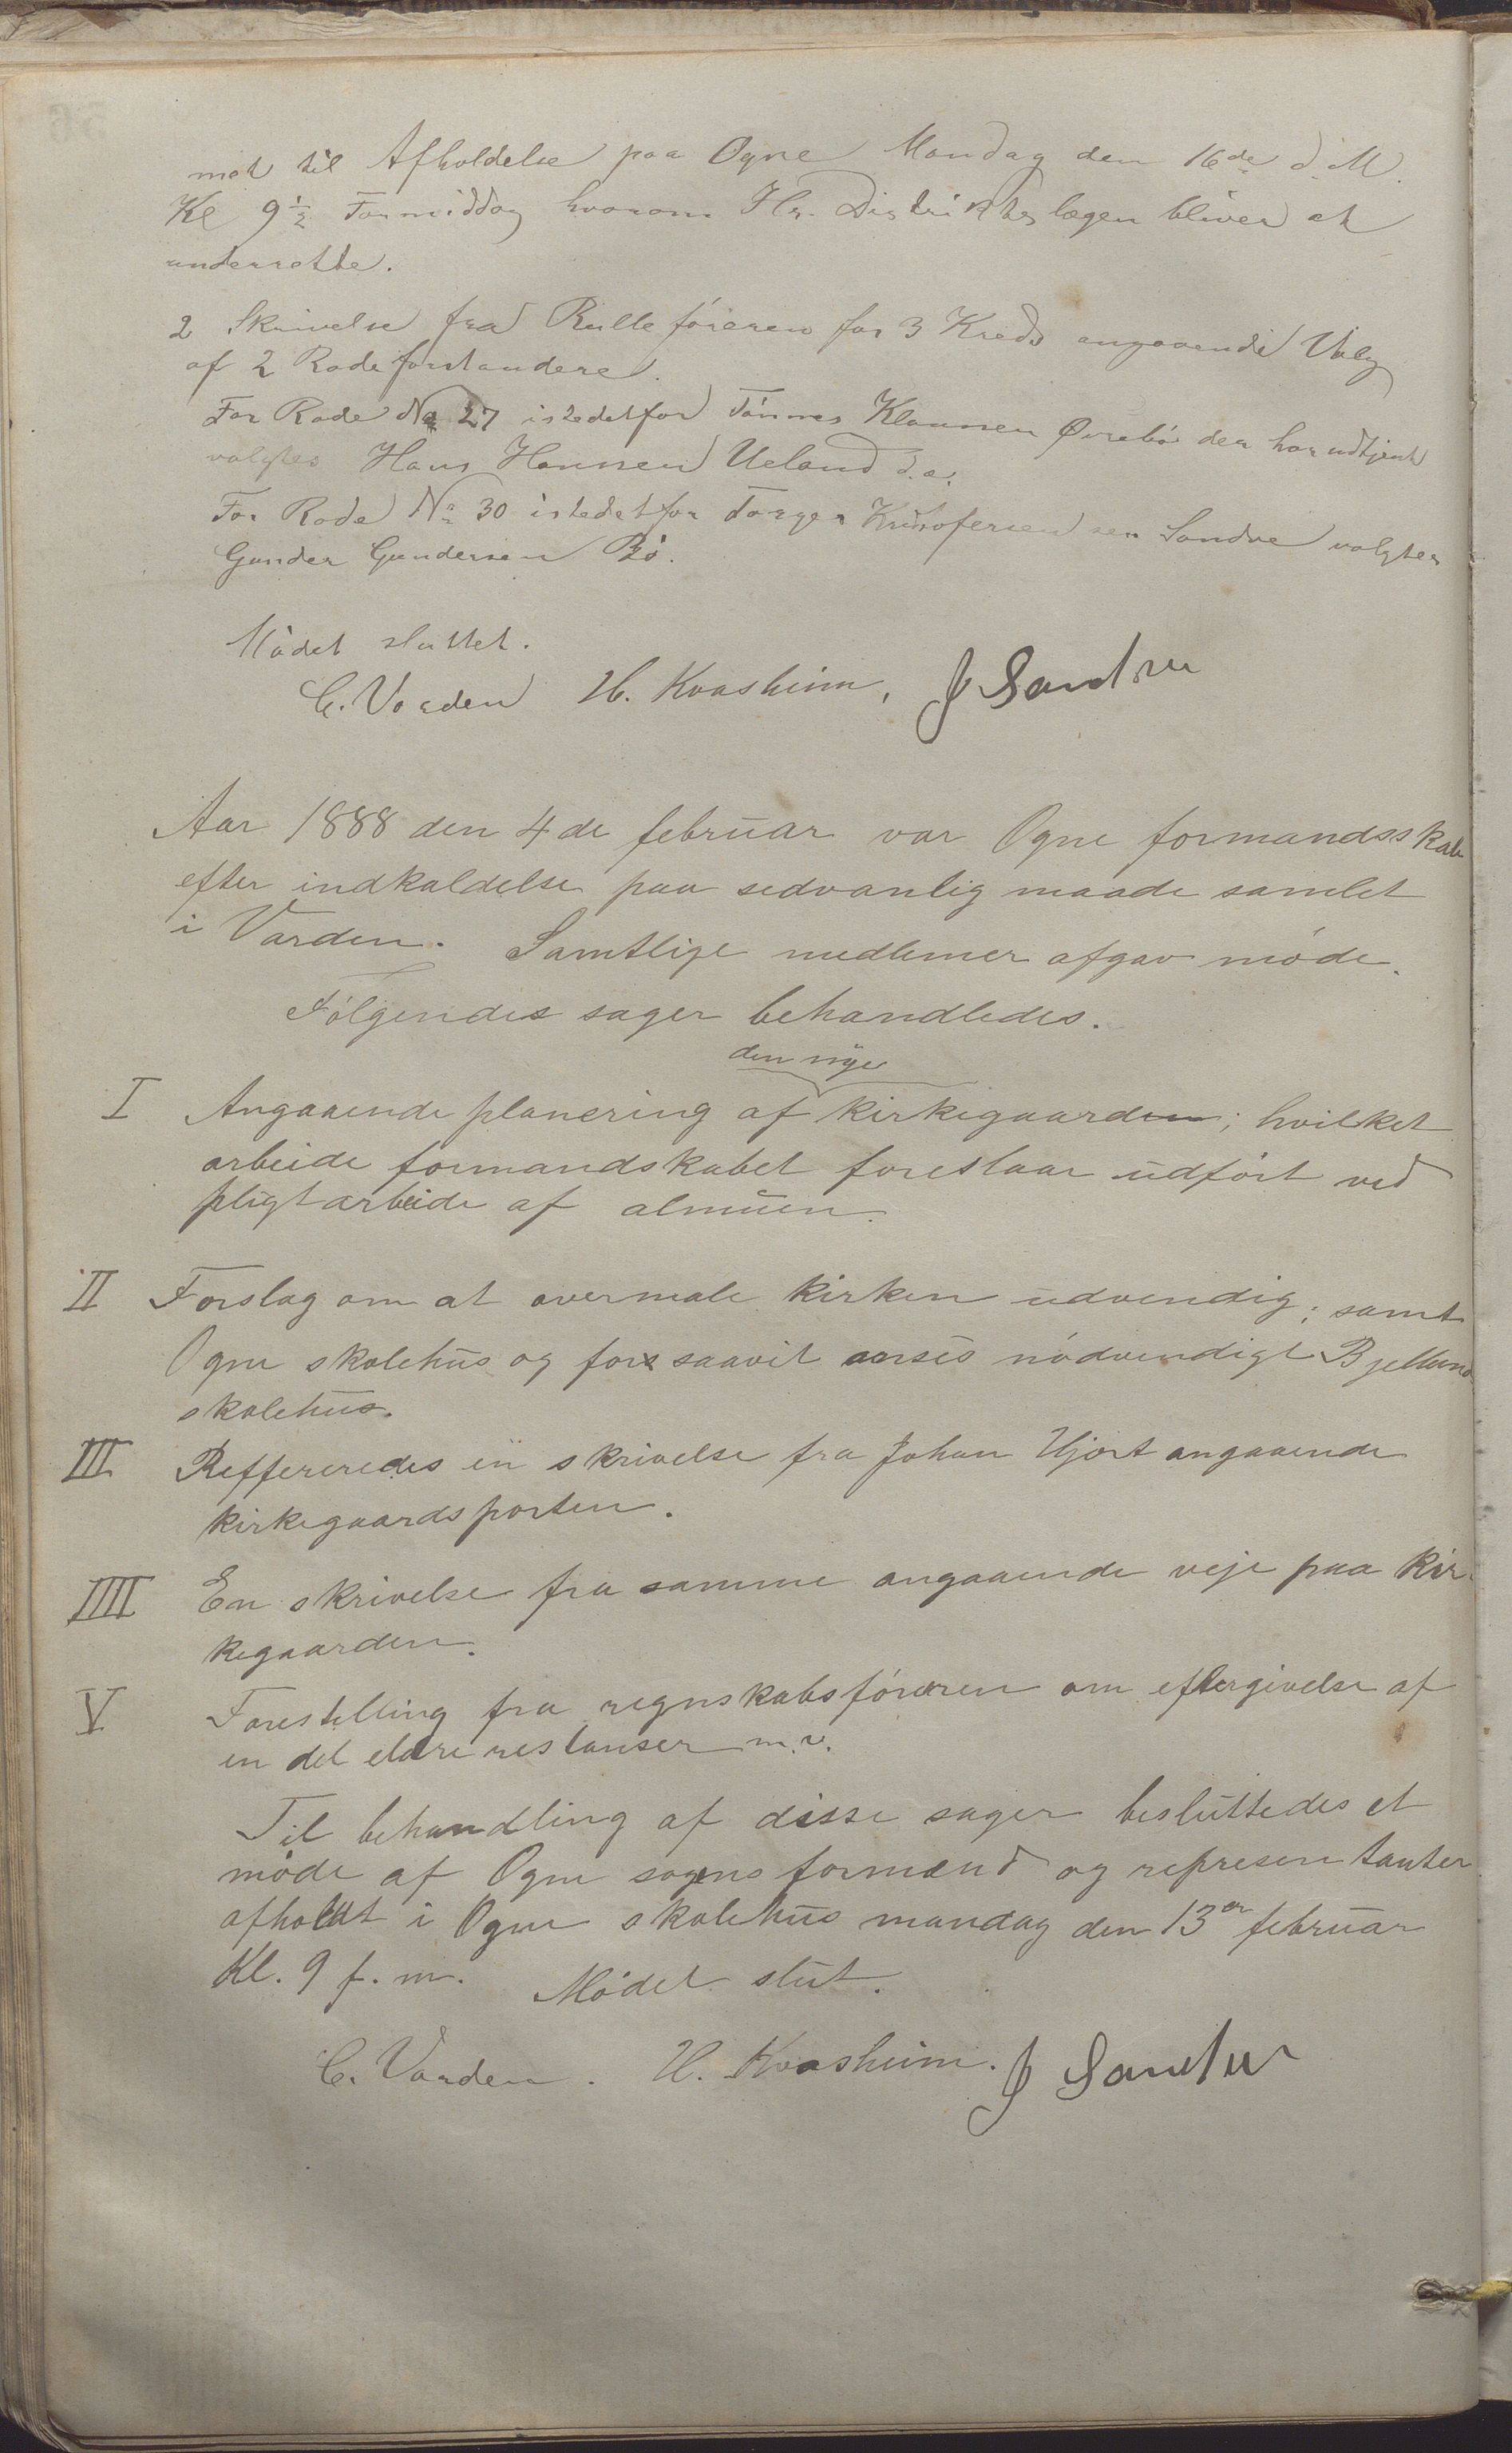 met til Afholdelse paa Ogne Mandag den 16de d. M.
Kl 9½ Formiddag hvorom Hr. Distriktslægen bliver at
underrette.
2 Skrivelse fra Rulleføreren for 3 Kreds angaaende Valg
af 2 Rodeforstandere.
For Rode No 27 istedetfor Tönnes Klaussen Ørrebö der har udtjent
valgtes Hans Hanssen Ueland d.a.
For Rode No 30 istedetfor Torger Kristofersen Sandve valgtes
Gunder Gundersen Bö.
Mödet sluttet.
C. Varden H. Kvasheim, J Sandve
Aar 1888 den 4de februar var Ogne formandsskab
efter indkaldelse paa sedvanlig maade samlet
i Varden. Samtlige medlemer afgav möde.
Fölgendes sager behandledes.
den nye
I Angaaende planering af kirkegaarden; hvilket
arbeide formandskabet foreslaar udfört ved
pligtarbeide af almuen.
II Forslag om at overmale kirken udvendig; samt
Ogne skolehus og for saavit ansés nödvendigt Bjelland
skolehus.
III Reffereredes en skrivelse fra Johan Hjort angaaende
kirkegaardsporten.
IIII En skrivelse fra samme angaaende veje paa kir-
kegaarden.
V Forestilling fra regnskabsföreren om eftergivelse af
en del eldre restanser m.v.
Til behandling af disse sager besluttedes et
möde af Ogne sogns formænd og representanter
afholdt i Ogne skolehus mandag den 13de februar
Kl. 9 f. m. Mödet slut.
C. Varden. H. Kvasheim. J Sandve